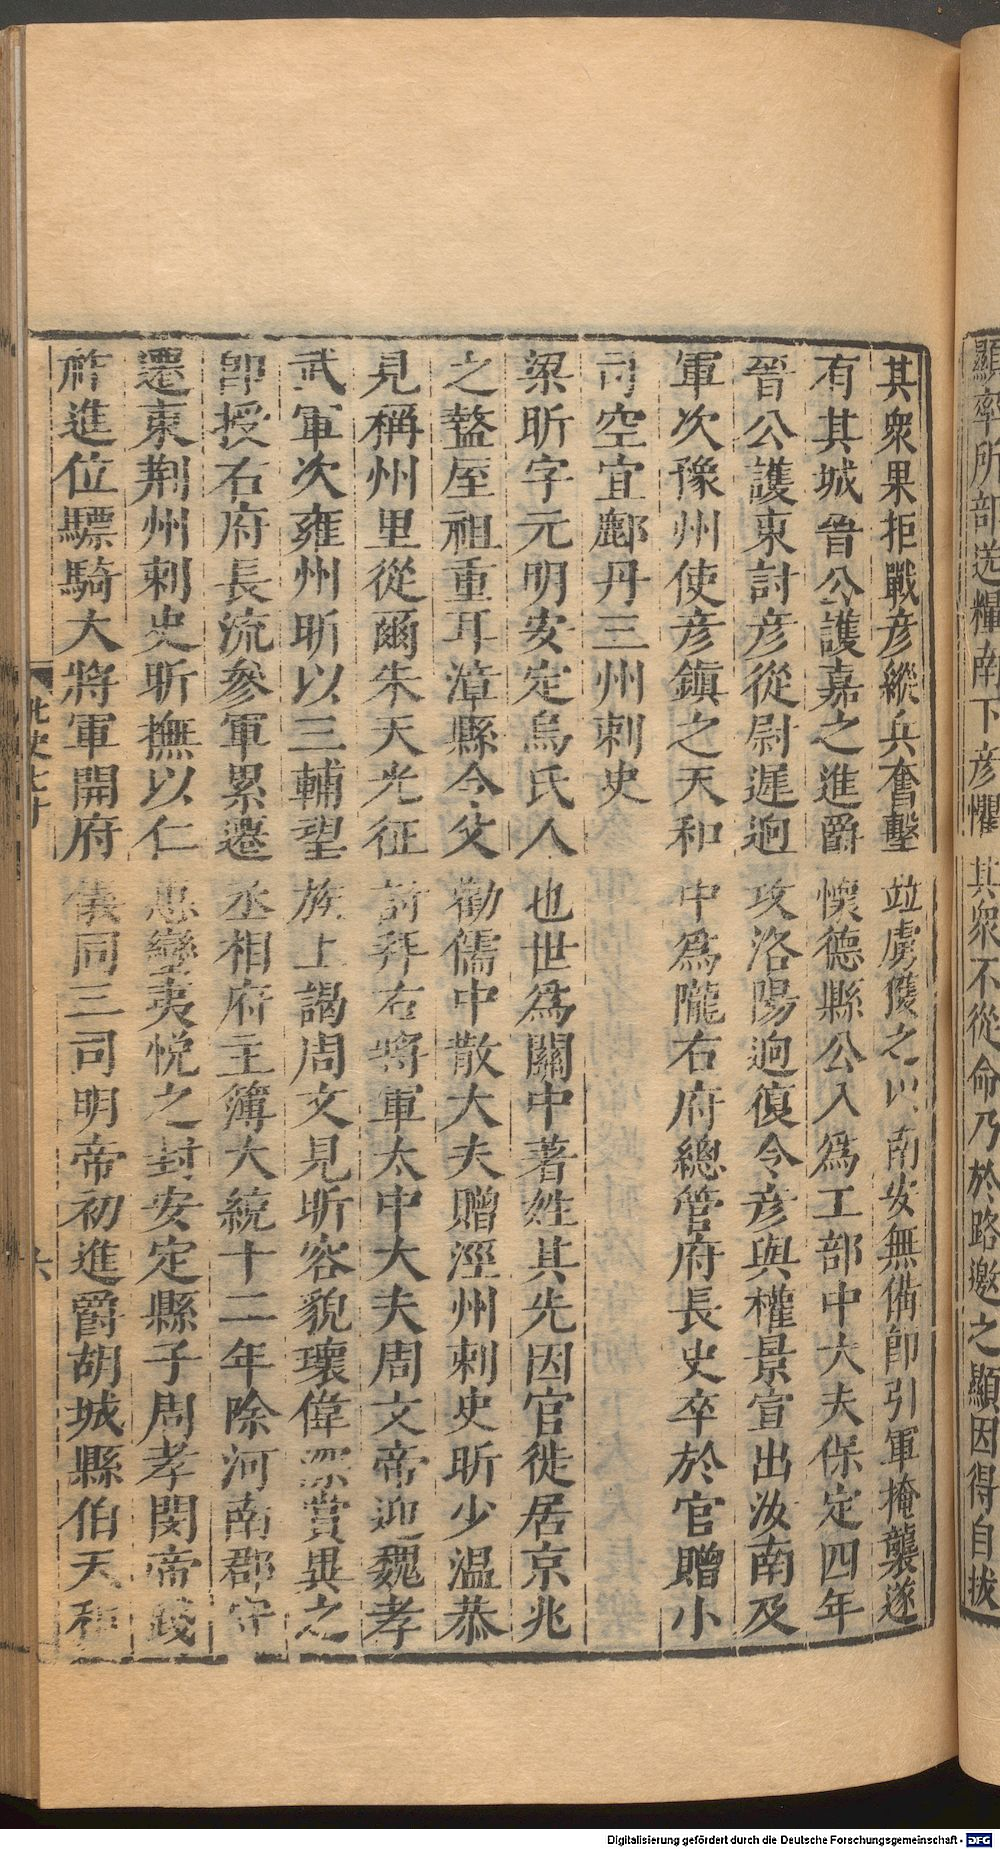 顯率所部送糧南下彦懼其衆不從命乃於路邀之顯因得自拔
其衆果拒戰彦縱兵奮擊竝虜獲之以南安無備卽引軍掩襲遂
有其城晉公護嘉之進爵懷德縣公入爲工部中大夫保定四年
晉公護東討彦從尉遲迥攻洛陽迥復令彦與權景宣出汝南及
軍次豫州使彦鎮之天和中爲隴右府總管府長史卒於官贈小
司空宜鄜丹三州刺史
梁昕字元明安定烏氏人也世爲關中著姓其先因官徙居京兆
之盩屋祖重耳漳縣令父勸儒中散大夫贈涇州刺史昕少温恭
見稱州里從爾朱天光征討拜右將軍太中大夫周文帝迎魏孝
武軍次雍州昕以三輔望族上謁周文見昕容貌瓌偉深賞異之
卽授右府長流參軍累遷丞相府主簿大統十二年除河南郡守
遷東荆州刺史昕撫以仁惠蠻夷悦之封安定縣子周孝閔帝踐
祚進位驃騎大將軍開府儀同三司明帝初進爵胡城縣伯天和
北史七十
六
Digitalisierung gefördert durch die Deutsche Forschungsgemeinschaft - DFG